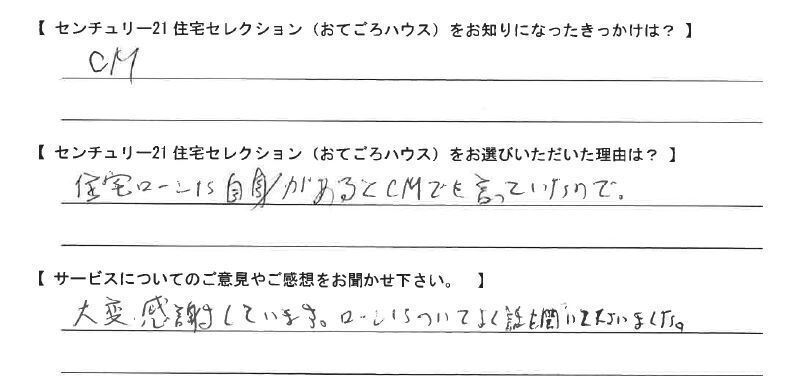 【 センチュリー21住宅セレクション（おてごろハウス）をお知りになったきっかけは？ 】
CM
【 センチュリー21住宅セレクション（おてごろハウス）をお選びいただいた理由は？ 】
住宅ローンに自身があるとCMでも言っていたので。
【 サービスについてのご意見やご感想をお聞かせ下さい。 】
大変感謝しています。ローンについてよく話を聞いて下さいました。